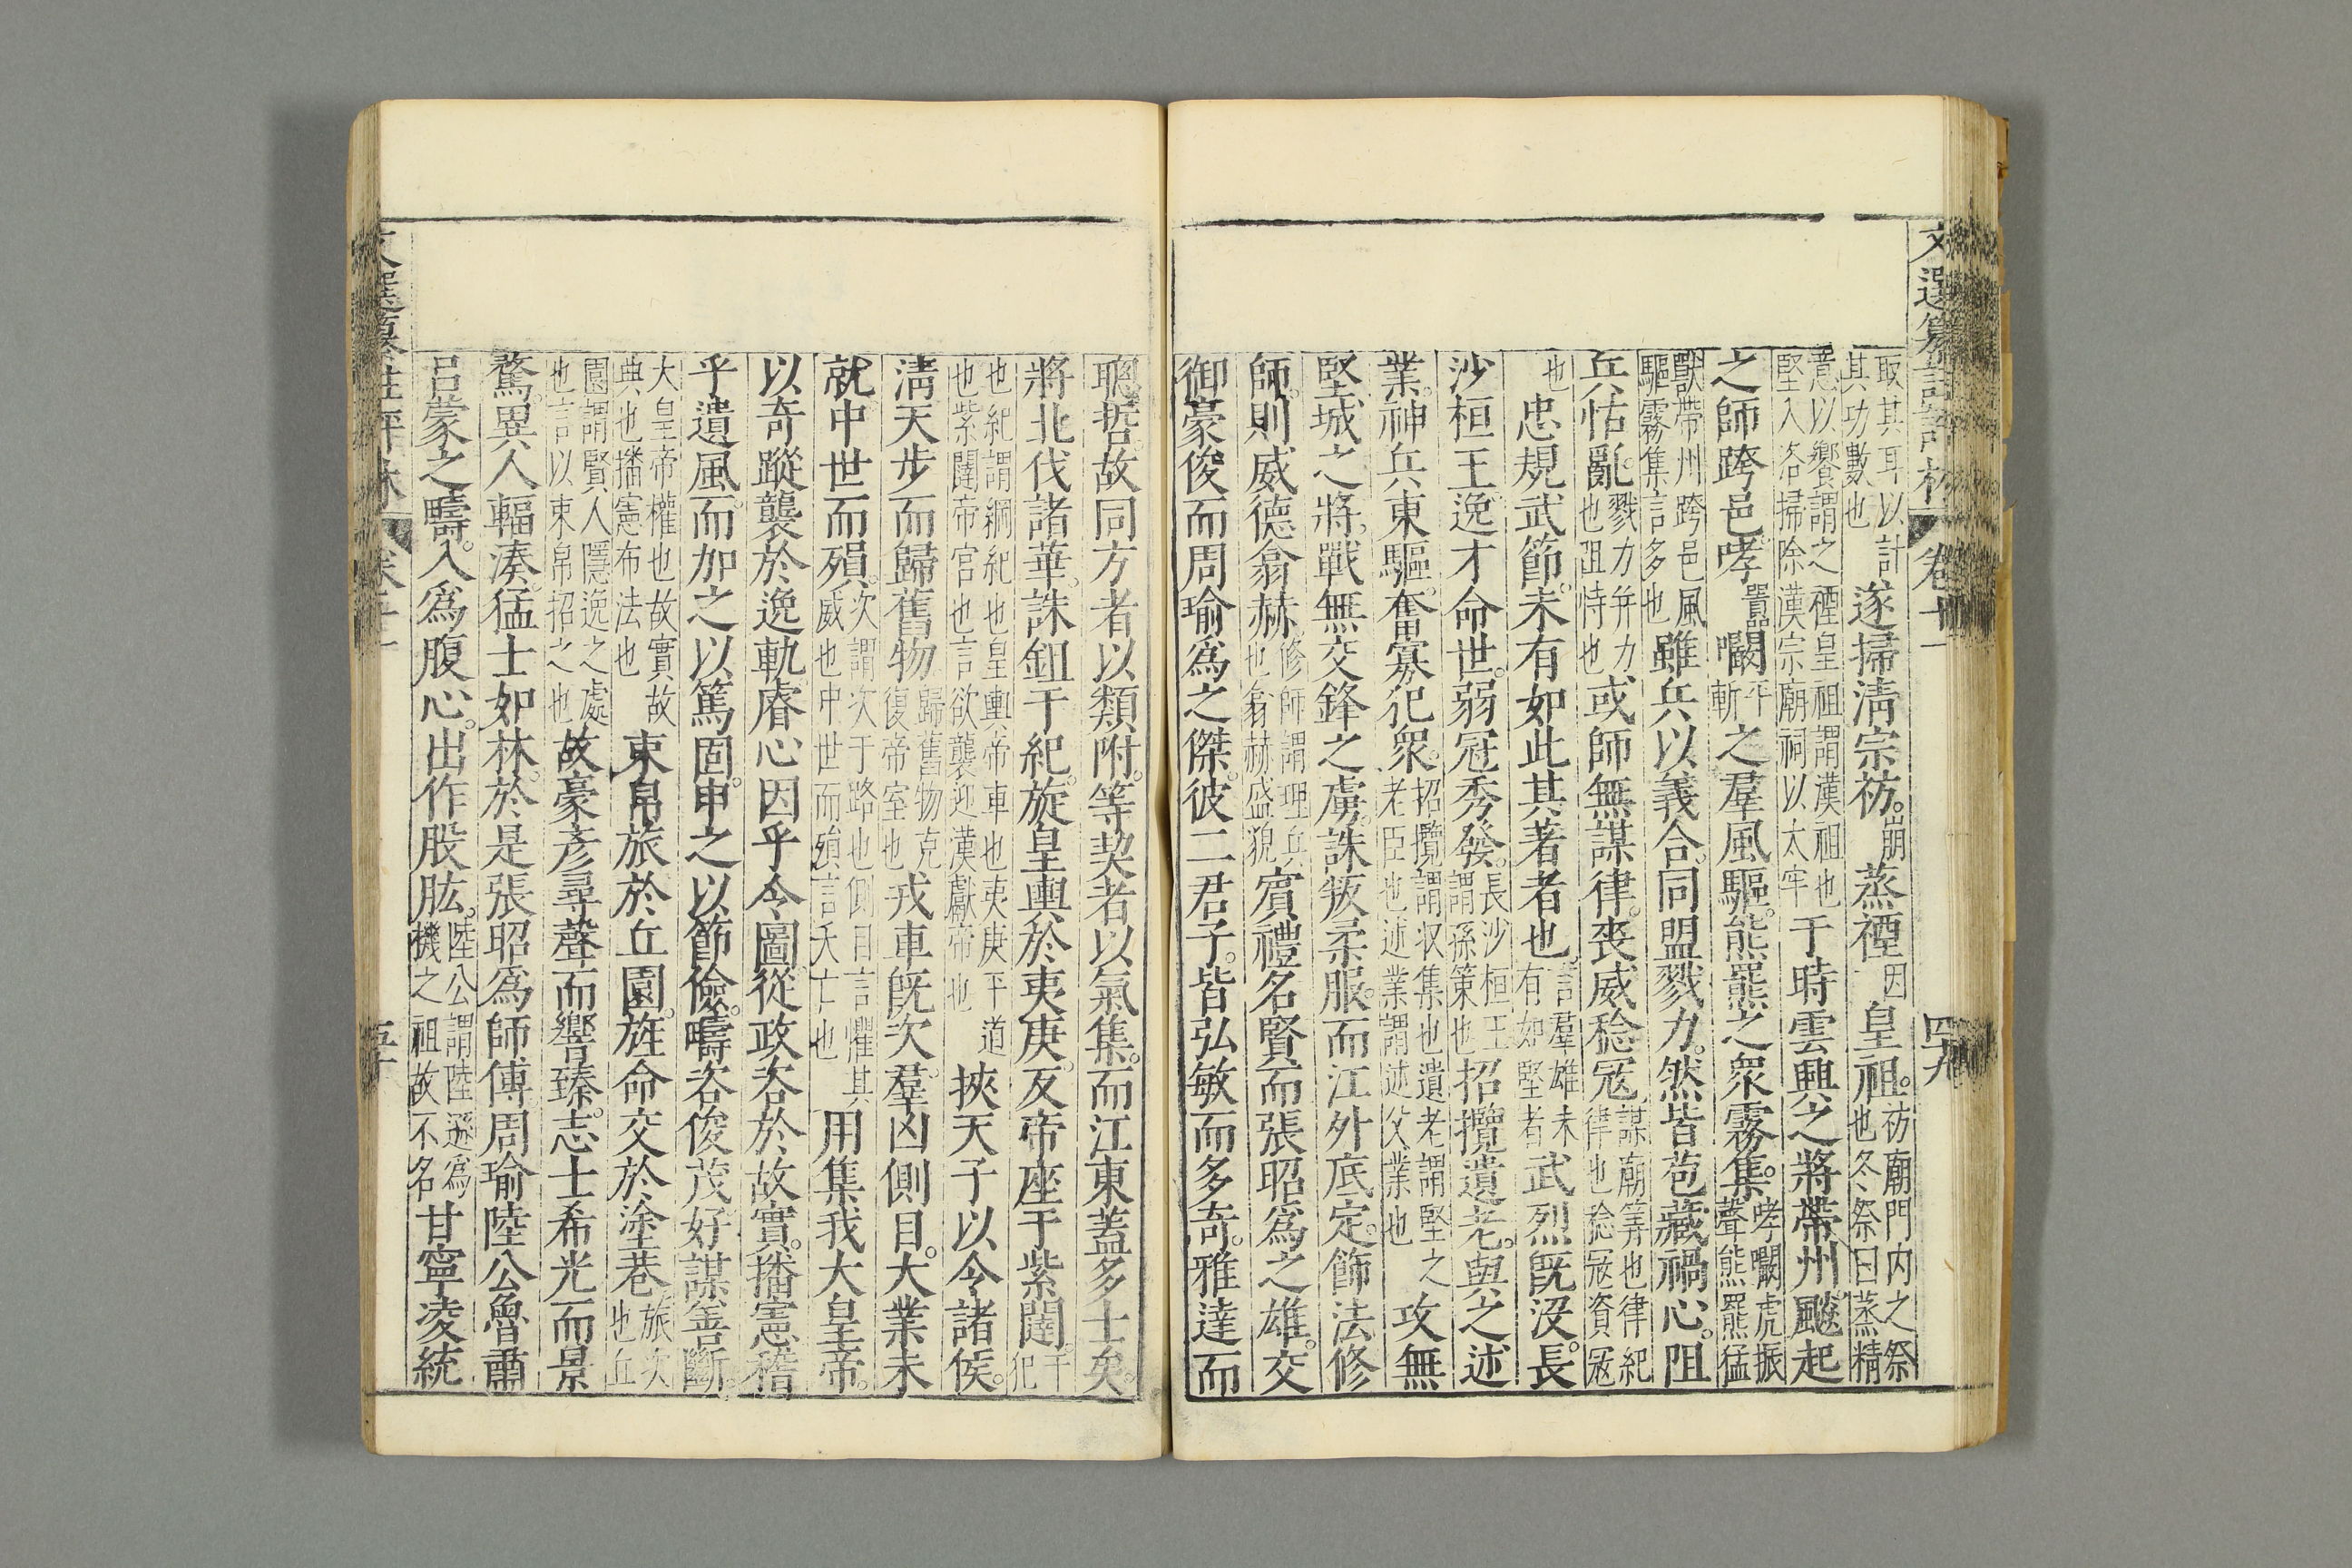 文選纂註評林 卷十一 四九
取其耳以計其功數也遂掃清宗祊崩蒸禋因皇祖祊廟門内之祭也冬祭曰蒸精
意以饗謂之禋皇祖謂漢祖也堅入洛掃除漢宗廟祠以太牢于時雲興之將帶州飈起
之師跨邑哮囂闞平斬之羣風驅熊羆之衆霧集哮闞虎振聲熊羆猛
獸帶州跨邑風驅霧集言多也雖兵以義合同盟戮力然皆苞藏禍心阻
兵怙亂戮力并力也阻恃也或師無謀律喪威稔寇謀廟筭也律紀律也稔寇資寇
也忠規武節未有如此其著者也言羣雄未有如堅者武烈旣沒長
沙桓王逸才命世弱冠秀發長沙桓王謂孫策也招攬遺老與之述
業神兵東驅奮寡犯衆招攬謂収集也遺老謂堅之老臣也述業謂述父業也攻無
堅城之將戰無交鋒之虜誅叛柔服而江外底定飾法修
師則威德翕赫修師謂理兵也翕赫盛貌賓禮名賢而張昭爲之雄交
御豪俊而周瑜爲之傑彼二君子皆弘敏而多奇雅達而
聰哲故同方者以類附等契者以氣集而江東蓋多士矣
將北伐諸華誅鉏干紀旋皇輿於夷庚反帝座于紫闥干犯
也紀謂綱紀也皇輿帝車也夷庚平道也紫闥帝宮也言欲襲迎漢獻帝也挾天子以令諸侯
清天步而歸舊物歸舊物克復帝室也戎車旣次羣凶側目大業未
就中世而殞次謂次于路也側目言懼其威也中世而殞言夭亡也用集我大皇帝
以奇蹤襲於逸軌睿心因乎令圖從政咨於故實播憲稽
乎遺風而加之以篤固申之以節儉疇咨俊茂好謀善斷
大皇帝權也故實故典也播憲布法也束帛旅於丘園旌命交於塗巷旅次也丘
園謂賢人隱逸之處也言以束帛招之也故豪彥尋聲而響臻志士希光而景
騖異人輻湊猛士如林於是張昭爲師傅周瑜陸公魯肅
呂蒙之疇入爲腹心出作股肱陸公謂陸遜爲機之祖故不名甘寧凌統
文選纂註評林 卷十一 五十